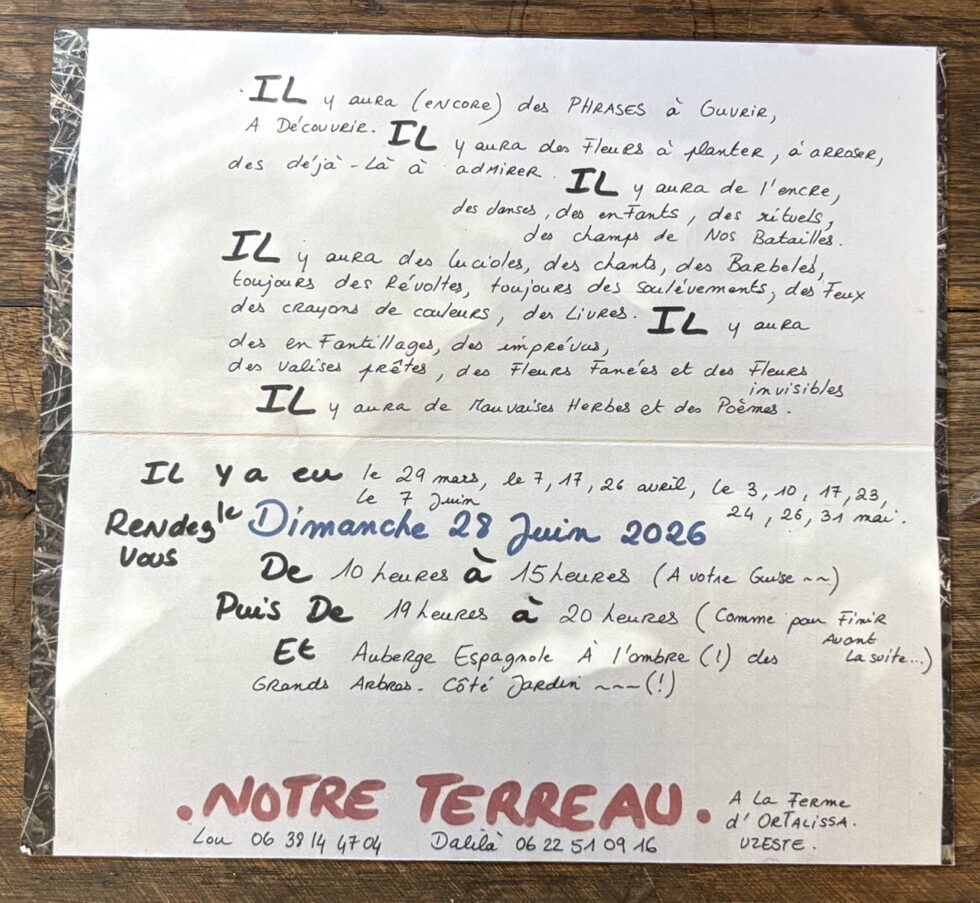 IL y aura (encore) des PHRASES à Ouvrir,
A Découvrir. IL y aura des Fleurs à planter, à arroser,
des déjà-là à admirer. IL y aura de l'encre,
des danses, des enfants, des rituels,
des champs de Nos Batailles.
IL y aura des lucioles, des chants, des Barbelés,
toujours des Révoltes, toujours des soulèvements, des Feux
des crayons de couleurs, des Livres. IL y aura
des enfantillages, des imprévus,
des valises prêtes, des Fleurs Fanées et des Fleurs
invisibles
IL y aura de Mauvaises Herbes et des Poèmes.
IL y a eu le 29 mars, le 7, 17, 26 avril, le 3, 10, 17, 23,
24, 26, 31 mai.
le 7 Juin
Rendez Vous le Dimanche 28 Juin 2026
De 10 heures à 15 heures (A votre Guise ~~)
Puis De 19 heures à 20 heures (Comme pour Finir
Avant
La suite...)
Et Auberge Espagnole À l'ombre (!) des
Grands Arbres. Côté Jardin ~~~(!)
. NOTRE TERREAU.
A La Ferme
d'ORTALISSA.
UZESTE.
Lou 06 38 14 47 04 Dalilà 06 22 51 09 16